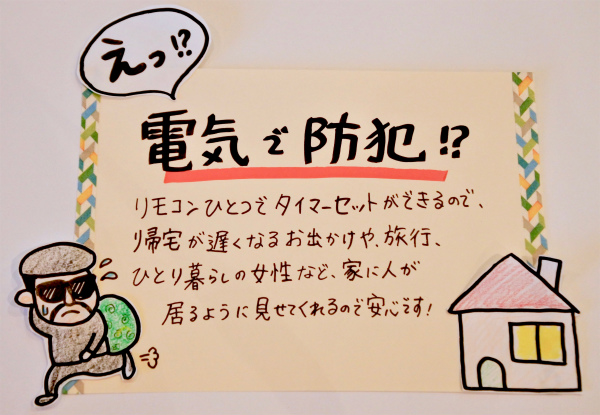 えっ!?
電気で防犯!?
リモコンひとつでタイマーセットができるので、
帰宅が遅くなるお出かけや、旅行、
ひとり暮らしの女性など、家に人が
居るように見せてくれるので安心です!